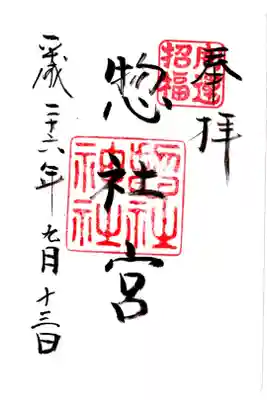 奉拝
開運
招福
惣社宮
社
神社
平成二十六年九月十三日